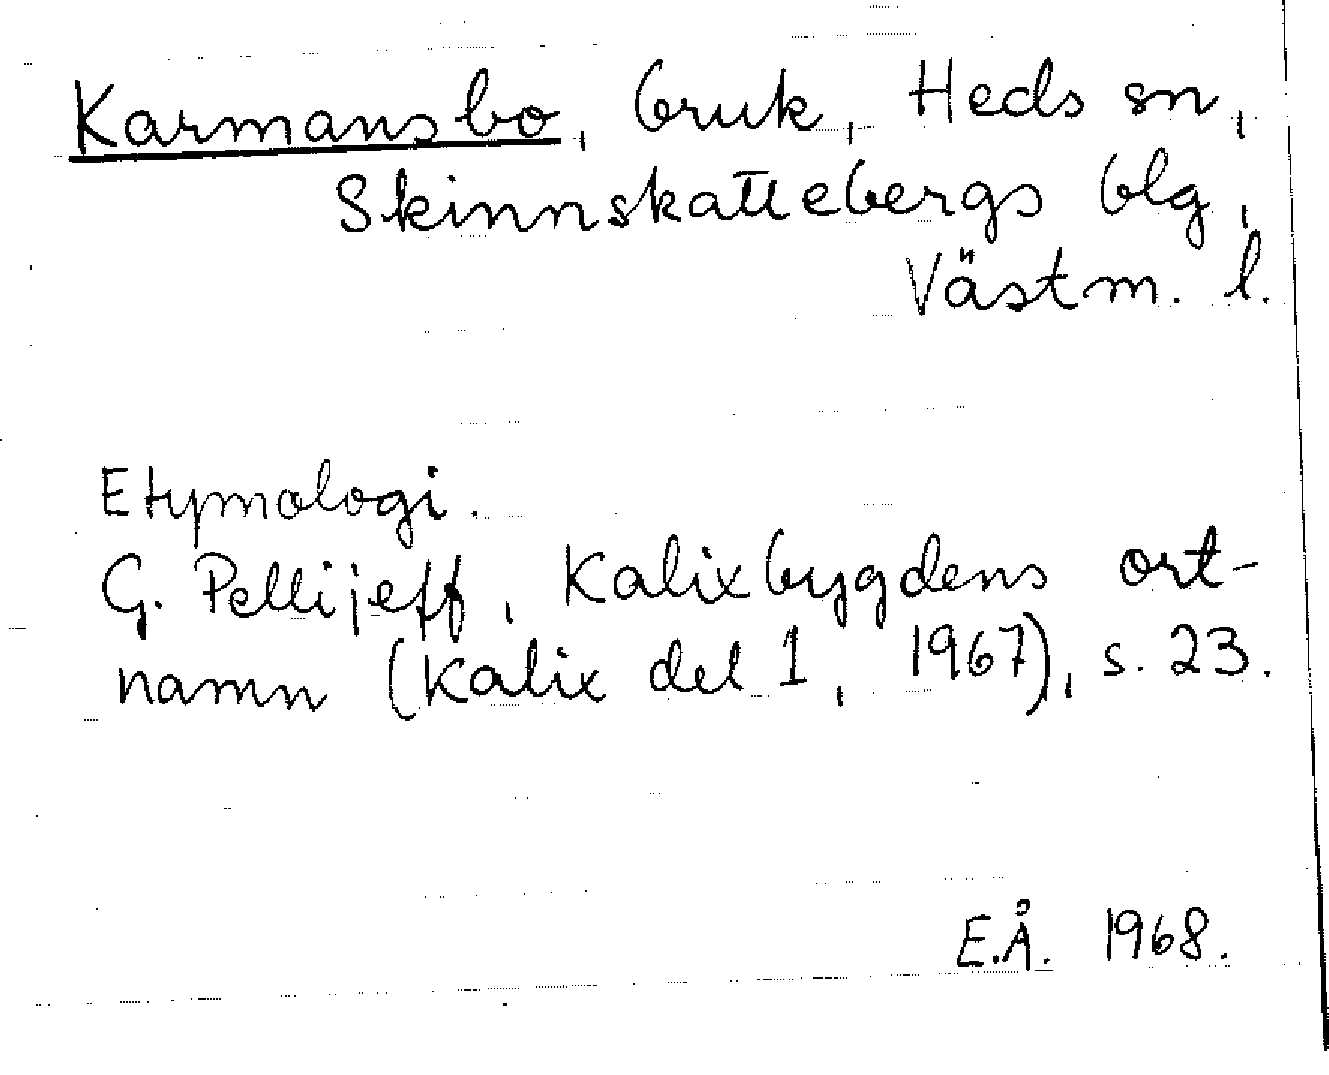 Karmansbo, bruk, Heds sn,
Skinnskattebergs blg,
Västm. l.
Etymologi.
G. Pellijeff, Kalixbygdens ort-
namn (Kalix del 1, 1967), s. 23.
E.Å. 1968.